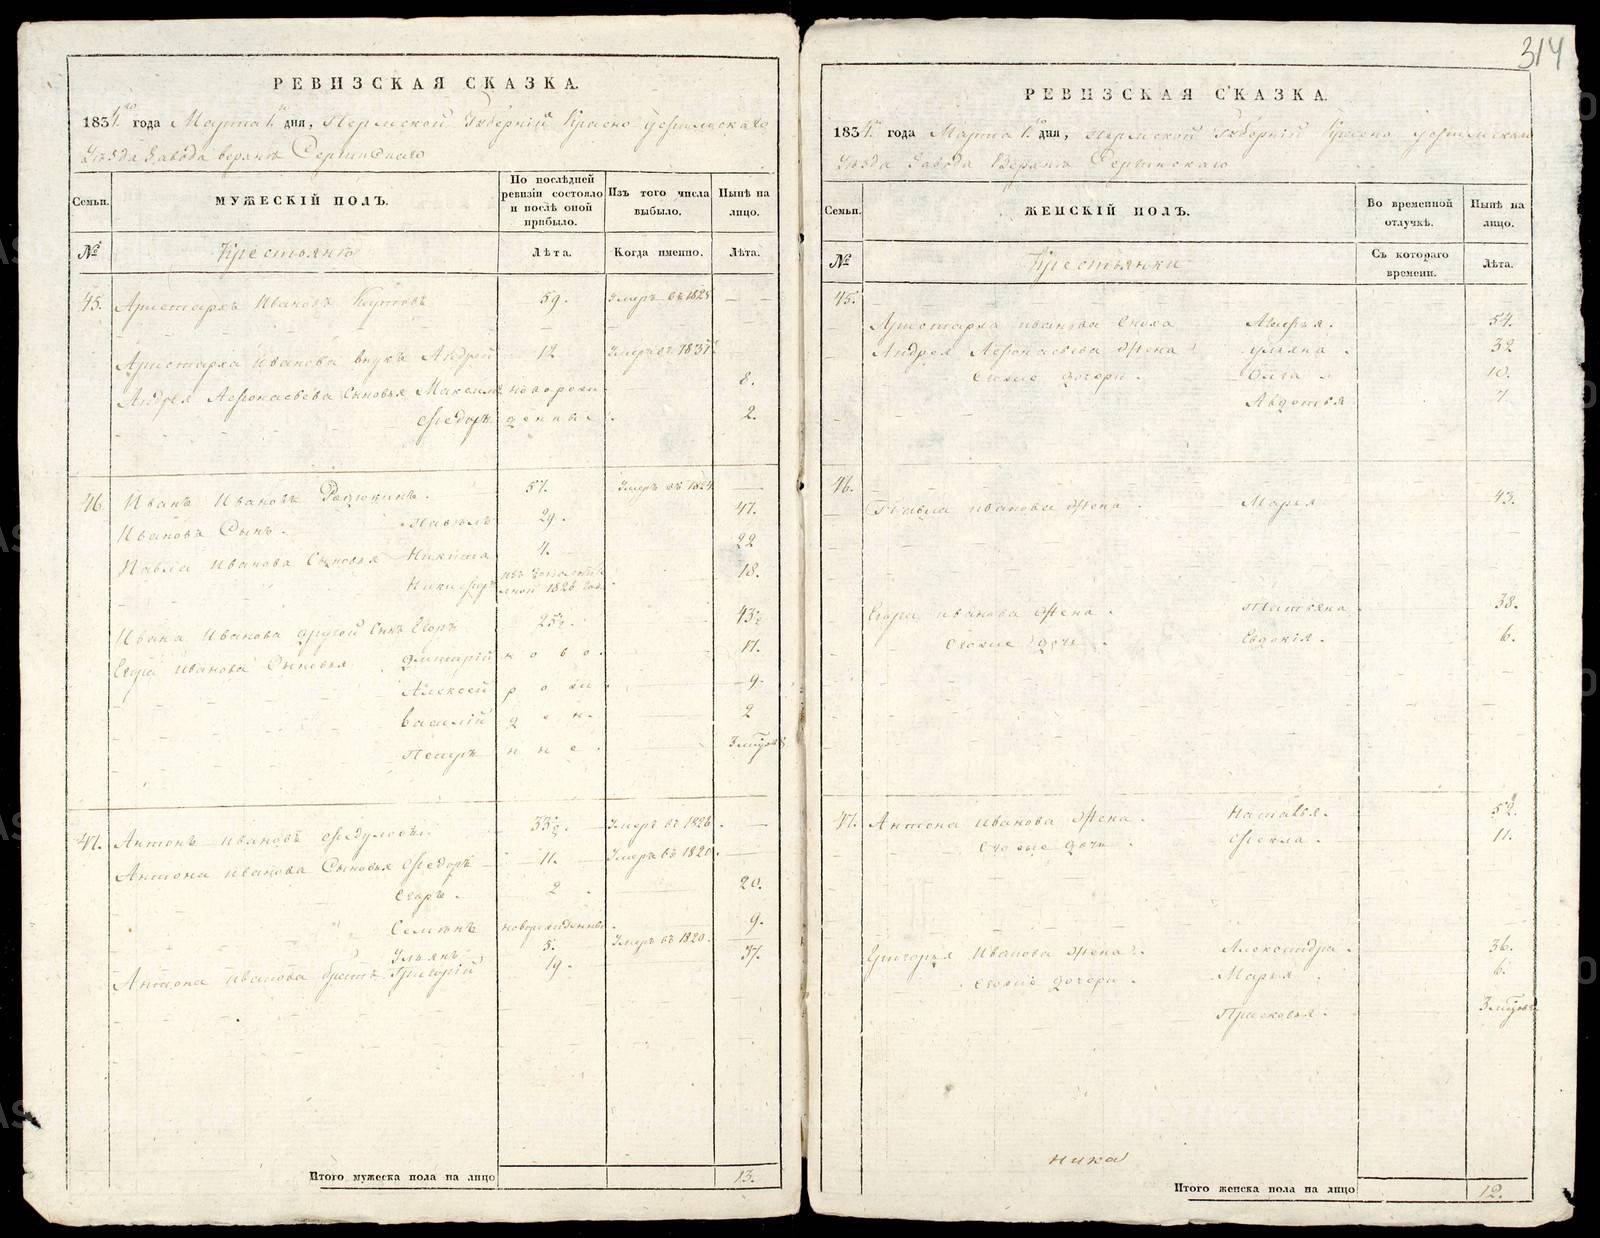 РЕВИЗСКАЯ СКАЗКА.
1834го года Марта 1го дня, Пермской Губерніи Красно уфимскаго
Уѣзда Завода верхнъ Сергинскаго
Семьи.
МУЖЕСКІЙ ПОЛЪ.
По послѣдней ревизіи состояло и послѣ оной прибыло.
Изъ того числа выбыло.
Нынѣ на лицо.
№
Крестьянъ
Лѣта.
Когда именно.
Лѣта.
45. Аристархъ Ивановъ 59. Умеръ въ 1825
Аристарха Иванова внукъ Андрей 12 Умеръ въ 1831
Андрея Афонасьева Сыновья Максимъ новорож 8.
Федоръ денные 2.
46 Иванъ Ивановъ 57. Умеръ въ 1824
Иванова Сынъ. Павелъ 29. 47.
Павла Иванова Сыновья Никита 4. 22
Никифоръ 1826 18.
Ивана Иванова другой Сынъ Егоръ 25½. 43½
Егора Иванова Сыновья Дмитрій ново. 17.
Алексей рож 9
Василій ден. 2
Петръ ные. 3 міцов
47. Антонъ Ивановъ Федуловъ. 33½. Умеръ въ 1826
Антона Иванова Сыновья Федоръ 11. Умеръ въ 1820
Егоръ. 2. 20.
Семенъ новорожденны. 9.
Ульянъ 5. Умеръ въ 1820.
Антона Иванова братъ Григорій 19. 37.
Итого мужеска пола на лицо 13.
314
РЕВИЗСКАЯ СКАЗКА.
1834го года Марта 1го дня, Пермской Губерніи Красно уфимскаго
Уѣзда Завода Верхнъ Сергинскаго
Семьи.
ЖЕНСКІЙ ПОЛЪ.
Во временной отлучкѣ.
Нынѣ на лицо.
№
Крестьянки
Съ котораго времени.
Лѣта.
45.
Аристарха иванова Сноха 54.
Андрея Афонасьева Жена ульяна. 32
Ольга 10.
Авдотья 7
46.
Павла иванова Жена. Марья 43.
Егора иванова Жена. Татьяна 38.
дочь. Евдокія. 6.
47. Антона Иванова Жена. Наталья. 52.
дочь Фекла. 11.
Григорья Иванова Жена. Александра. 36.
дочери. Марья 6.
Прасковья. 3 міцов
ника
Итого женска пола на лицо 12.